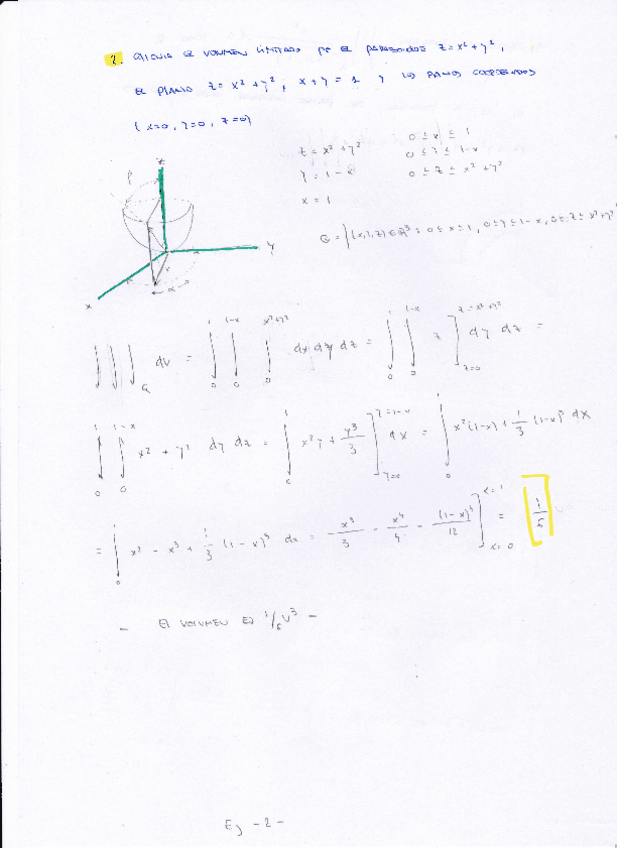 2. CALCULA EL VOLUMEN LIMITADO POR EL PARABOLOIDE z = x² + y²,
EL PLANO z = x² + y², x + y = 1 y LOS PLANOS COORDENADOS
(x=0, y=0, z=0)
z = x² + y² 0 ≤ x ≤ 1
y = 1 - x 0 ≤ y ≤ 1-x
x = 1 0 ≤ z ≤ x² + y²
G = {(x,y,z) ∈ ℝ³ : 0 ≤ x ≤ 1, 0 ≤ y ≤ 1-x, 0 ≤ z ≤ x²+y²
z
y
x
∫∫∫_G dV = ∫₀¹ ∫₀^{1-x} ∫₀^{x²+y²} dx dy dz = ∫₀¹ ∫₀^{1-x} z ]_{z=0}^{z=x²+y²} dy dz =
∫₀¹ ∫₀^{1-x} x² + y² dy dx = ∫₀¹ x²y + y³/3 ]_{y=0}^{y=1-x} dx = ∫₀¹ x²(1-x) + 1/3 (1-x)³ dx
= ∫₀¹ x² - x³ + 1/3 (1-x)³ dx = x³/3 - x⁴/4 - (1-x)⁴/12 ]_{x=0}^{x=1} = [1/6]
- El VOLUMEN ES 1/6 u³ -
Ej -2-